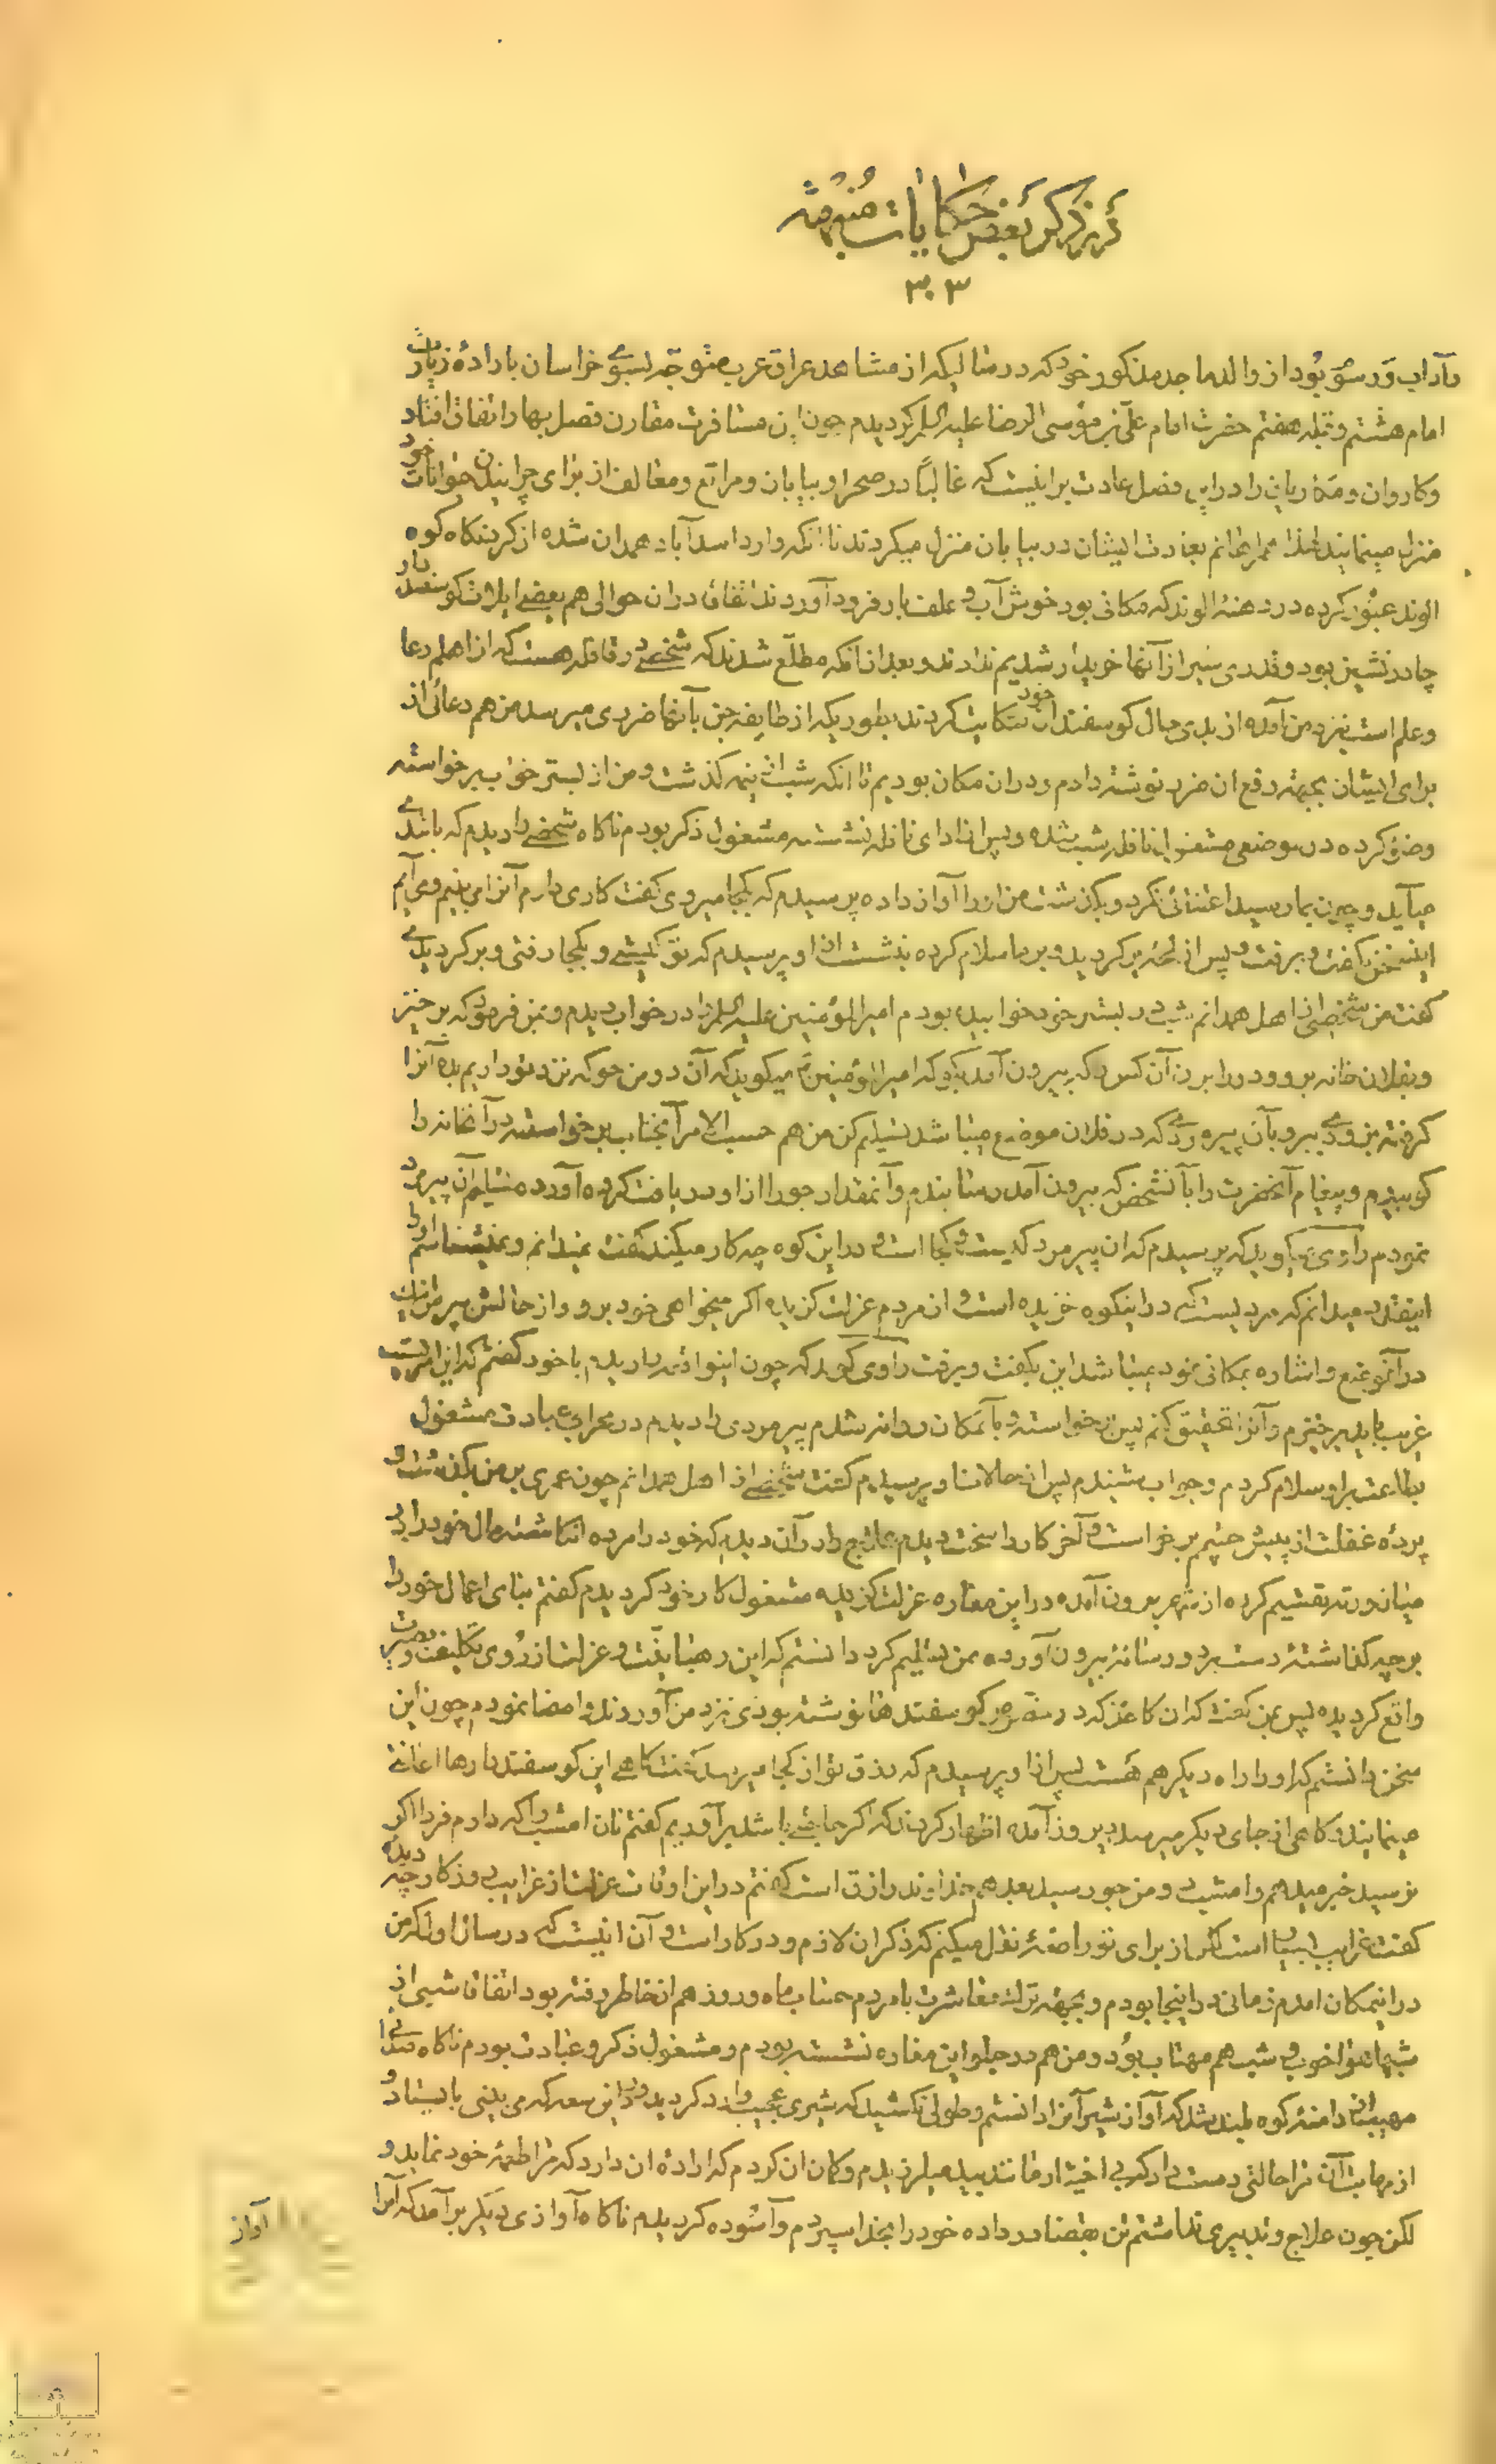 در ذکر بعض حکایات متفرقه
۳۰۳
و آداب و رسوم بود از والد ماجد مذکور خود که در سالیکه از مشاهد عراق عرب متوجه بسوی خراسان باراده زیارت
امام هشتم و قبله هفتم حضرت امام علی بن موسی الرضا علیه السلام گردیدم چون این مسافرت مقارن فصل بهار اتفاق افتاد
و کاروان و مکاریان را در این فصل عادت بر اینست که غالبًا در صحرا و بیابان و مراتع و معالف از برای چرانیدن حیوانات خود
منزل مینمایند لهذا همراهانم بعادت ایشان در بیابان منزل میکردند تا انکه وارد اسدآباد همدان شده از گردنگاه کوه
الوند عبور کرده در دهنه الوند که مکانی بود خوش آب و علف بار فرود آوردند اتفاقا در ان حوالی هم بعضی ایلات گوسفند دار
چادر نشین بود و قدری شیر از آنها خریدار شدیم ندادند و بعد از انکه مطلع شدند که شخصی در قافله هست که از اهل دعا
و علم است بنزد من آمده از بدی حال گوسفندان خود شکایت کردند بطوریکه از طایفه جن بآنها ضرری میرسد من هم دعائی از
برای ایشان بجهته دفع ان ضرر نوشته دادم و در ان مکان بودیم تا انکه شب از نیمه گذشت و من از بستر خواب برخواسته
وضو کرده در موضعی مشغول نافله شب شده و پس از ادای نافله نشسته مشغول ذکر بودم ناگاه شخصی را دیدم که باتندی
میآید و چون بما رسید اعتنائی نکرد و بگذشت من او را آواز داده پرسیدم که بکجا میروی گفت کاری دارم آنرا می بینم و می آیم
این سخن بگفت و برفت و پس از لحظه برگردید و بر ما سلام کرده بنشست از او پرسیدم که تو کیستی و بکجا رفتی و برگردیدی
گفت من شخصی از اهل همدانم شب در بستر خود خوابیده بودم امیرالمؤمنین علیه السلام را در خواب دیدم و بمن فرمود که برخیز
و بفلان خانه برو و در را بزن آن کس که بیرون آمد بگو که امیرالمؤمنین میگوید که آن دو من جو که نزد تو داریم بده آنرا
گرفته بزودی ببر و بآن پیرمردی که در فلان موضع میباشد تسلیم کن من هم حسب الامر آنجناب برخواسته در آنخانه را
کوبیدم و پیغام آنحضرت را بآنشخص که بیرون آمد رسانیدم و آنمقدار جو را از او دریافت کرده آورده تسلیم آن پیرمرد
نمودم راوی گوید که پرسیدم که ان پیرمرد کیست و کجا است و در این کوه چه کار میکند گفت نمیدانم و نمیشناسم او را
اینقدر میدانم که مردیست که در اینکوه خزیده است و از مردم عزلت گزیده اگر میخواهی خود برو و از حالش بپرس اینک
در آنموضع و اشاره بمکانی نمود میباشد این بگفت و برفت راوی گوید که چون اینواقعه را دیدم با خود گفتم که این امریست
غریب باید برخیزم و آنرا تحقیق کنم پس برخواسته و بآنمکان روانه شدم پیرمردی را دیدم در محراب عبادت مشغول
بطاعت بر او سلام کردم و جواب شنیدم پس از حالات او پرسیدم گفت شخصی از اهل همدانم چون عمری بر من بگذشت و
پرده غفلت از پیش چشم برخواست و آخر کار را سخت دیدم علاج را در آن دیدم که خود را مرده انگاشته مال خود را در
میان ورثه تقسیم کرده از شهر بیرون آمده در این مغاره عزلت گزیده مشغول کار خود گردیدم گفتم بنای اعمال خود را
بر چه گذاشته دست برد و رساله بیرون آورده بمن تسلیم کرد دانستم که این رهبانیت و عزلت از روی تکلیف و بصیرت
واقع گردیده پس بمن گفت که ان کاغذ که در گوسفندها نوشته بودی نزد من آوردند و امضا نمودم چون این
سخن دانستم که او را راه دیگر هم هست پس از او پرسیدم که رزق تو از کجا میرسد گفت گاهی این گوسفند دارها اعانت
مینمایند و گاهی از جای دیگر میرسد دیروز آمده اظهار کردند که اگر حاجتی باشد برآوریم گفتم نان امشب را که دارم فردا اگر
نرسید خبر میدهم و امشب دو من جو رسید بعد هم خداوند رازق است گفتم در این اوقات عزلت از غرایب روزگار چه دیدهٔ
گفت غرایب بسیار است لکن از برای تو واقعهٔ نقل میکنم که ذکر ان لازم و در کار است و آن اینست که در سال اول که من
در اینمکان امدم زمانی در اینجا بودم و بجهته ترک معاشرت با مردم حساب ماه و روز هم از خاطر رفته بود اتفاقا شبی از
شبها هوا خوب و شب هم مهتاب بود و من هم در جلو این مغاره نشسته بودم و مشغول ذکر و عبادت بودم ناگاه صدای
مهیبی از دامنه کوه بلند شد که آواز شیر آنرا دانستم و طولی نکشید که شیری عجیب وارد گردید و در این سعه که می بینی بایستاد و
از مهابت آن مرا حالتی دست داد که بی اختیار مانند بید میلرزیدم و گمان ان کردم که اراده ان دارد که مرا طعمه خود نماید و
لکن چون علاج و تدبیری نداشتم تن بقضا در داده خود را بخدا سپردم و آسوده گردیدم ناگاه آوازی دیگر برآمد که آنرا
آواز